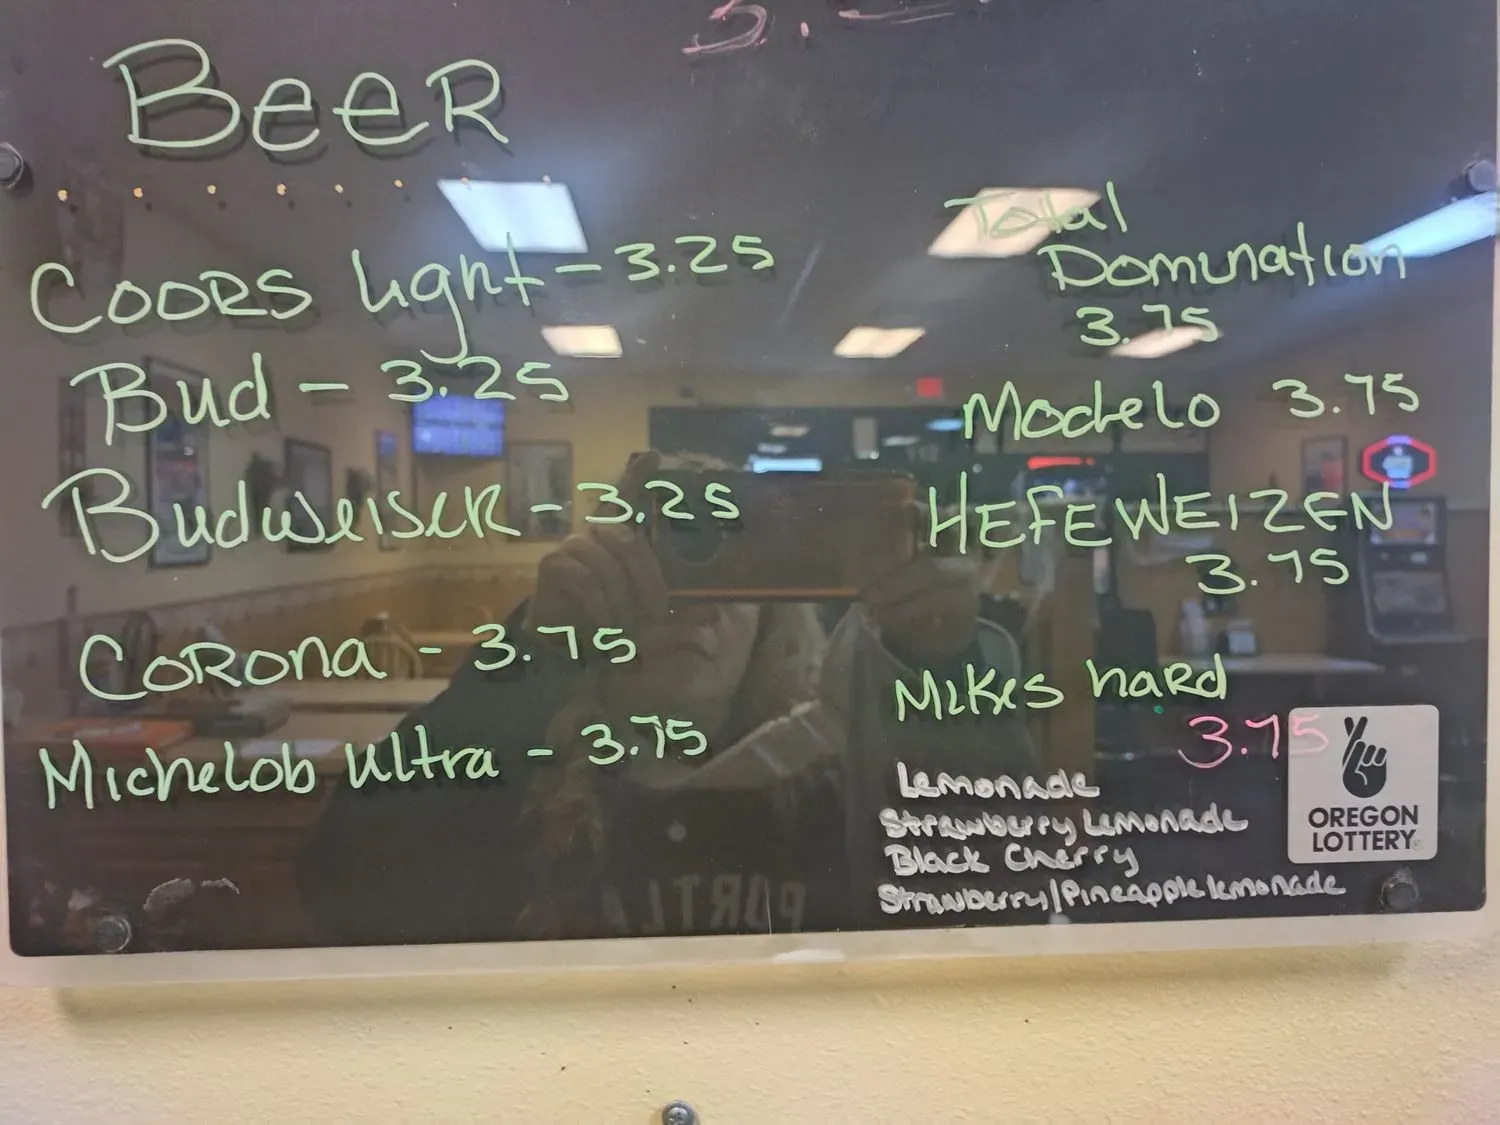 BeeR
COORS light - 3.25
Bud - 3.25
Budweiser - 3.25
CoRona - 3.75
Michelob Ultra - 3.75
Total
Domination
3.75
Modelo 3.75
HEFEWEIZEN
3.75
Mikes haRd
3.75
Lemonade
Strawberry Lemonade
Black Cherry
Strawberry/Pineapple lemonade
OREGON
LOTTERY